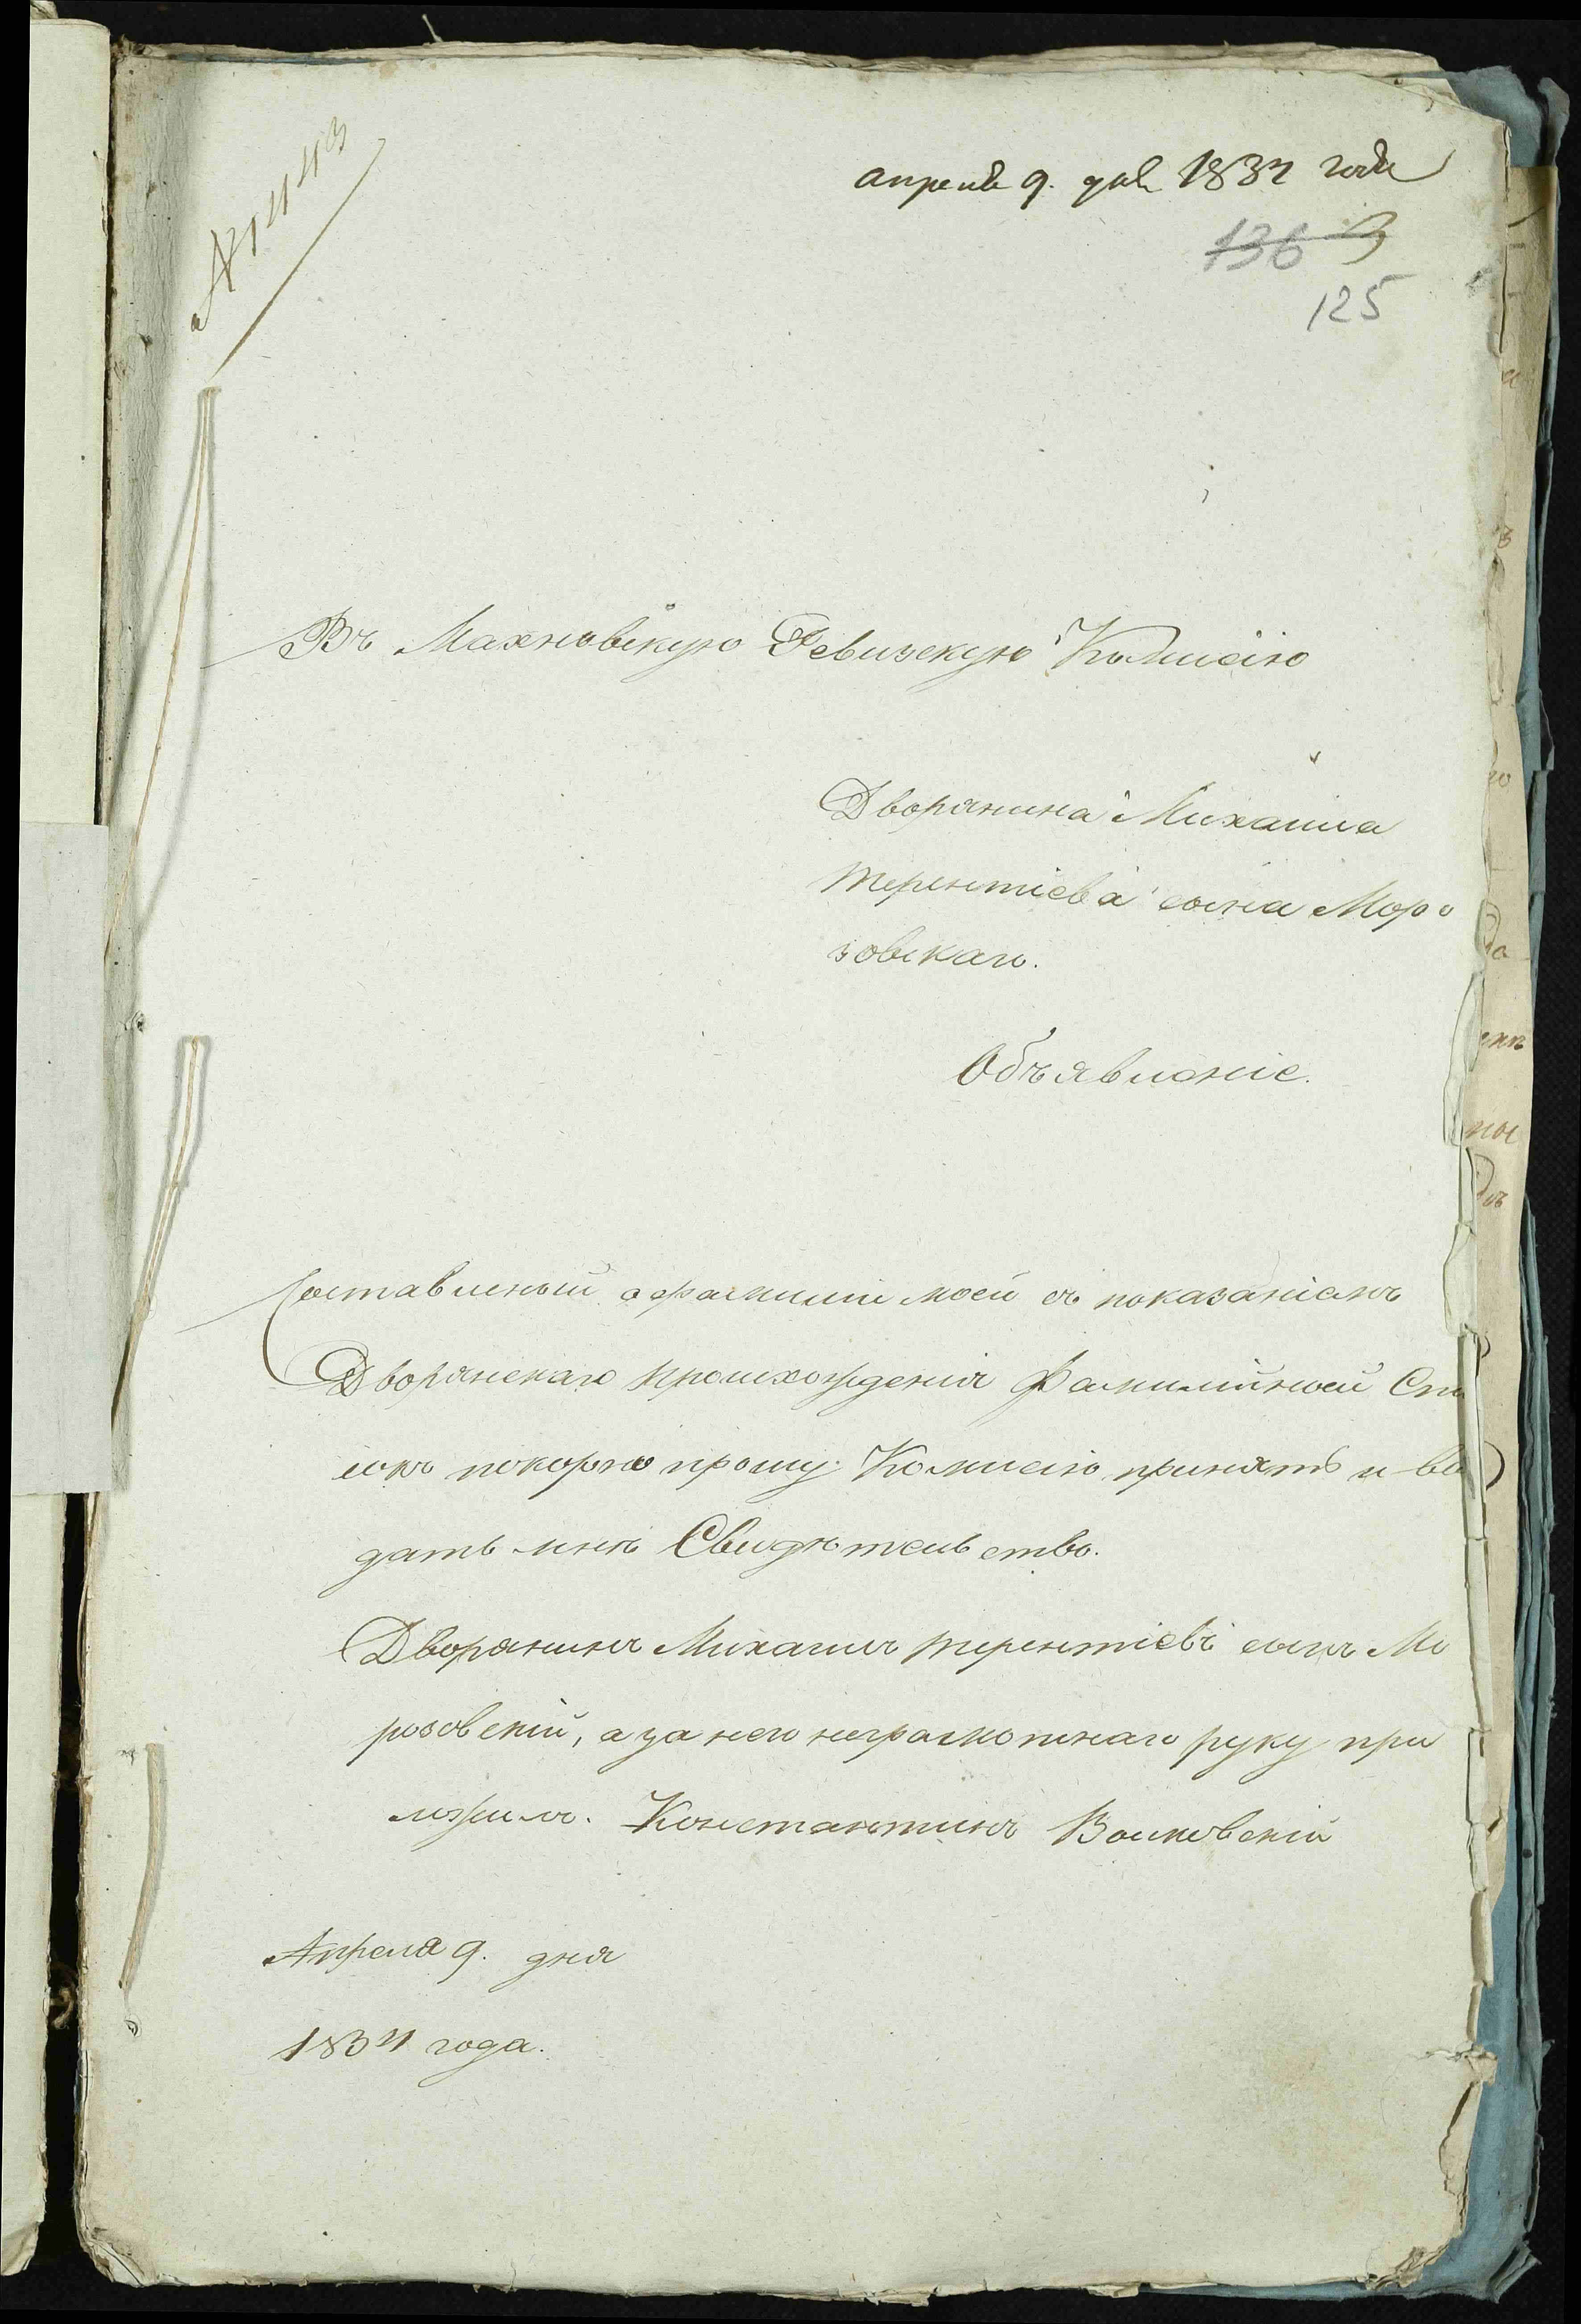 № 1443
апреля 9. дня 1834 года
136
125
Въ Махновскую Ревизскую Коммисію
Дворянина Михаила
Терентіева сына Моро
зовскаго.
Объявленіе.
Составленный о фамиліи моей съ показаніемъ
Дворянскаго происхожденія Фамилійной Спи
сокъ покорно прошу Комисію принять и вы
дать мнѣ Свидѣтельство.
Дворянинъ Михаилъ Терентіевъ сынъ Мо
розовскій, а за него неграмотнаго руку при
ложилъ. Константинъ Волковскій
Апреля 9. дня
1834 года.